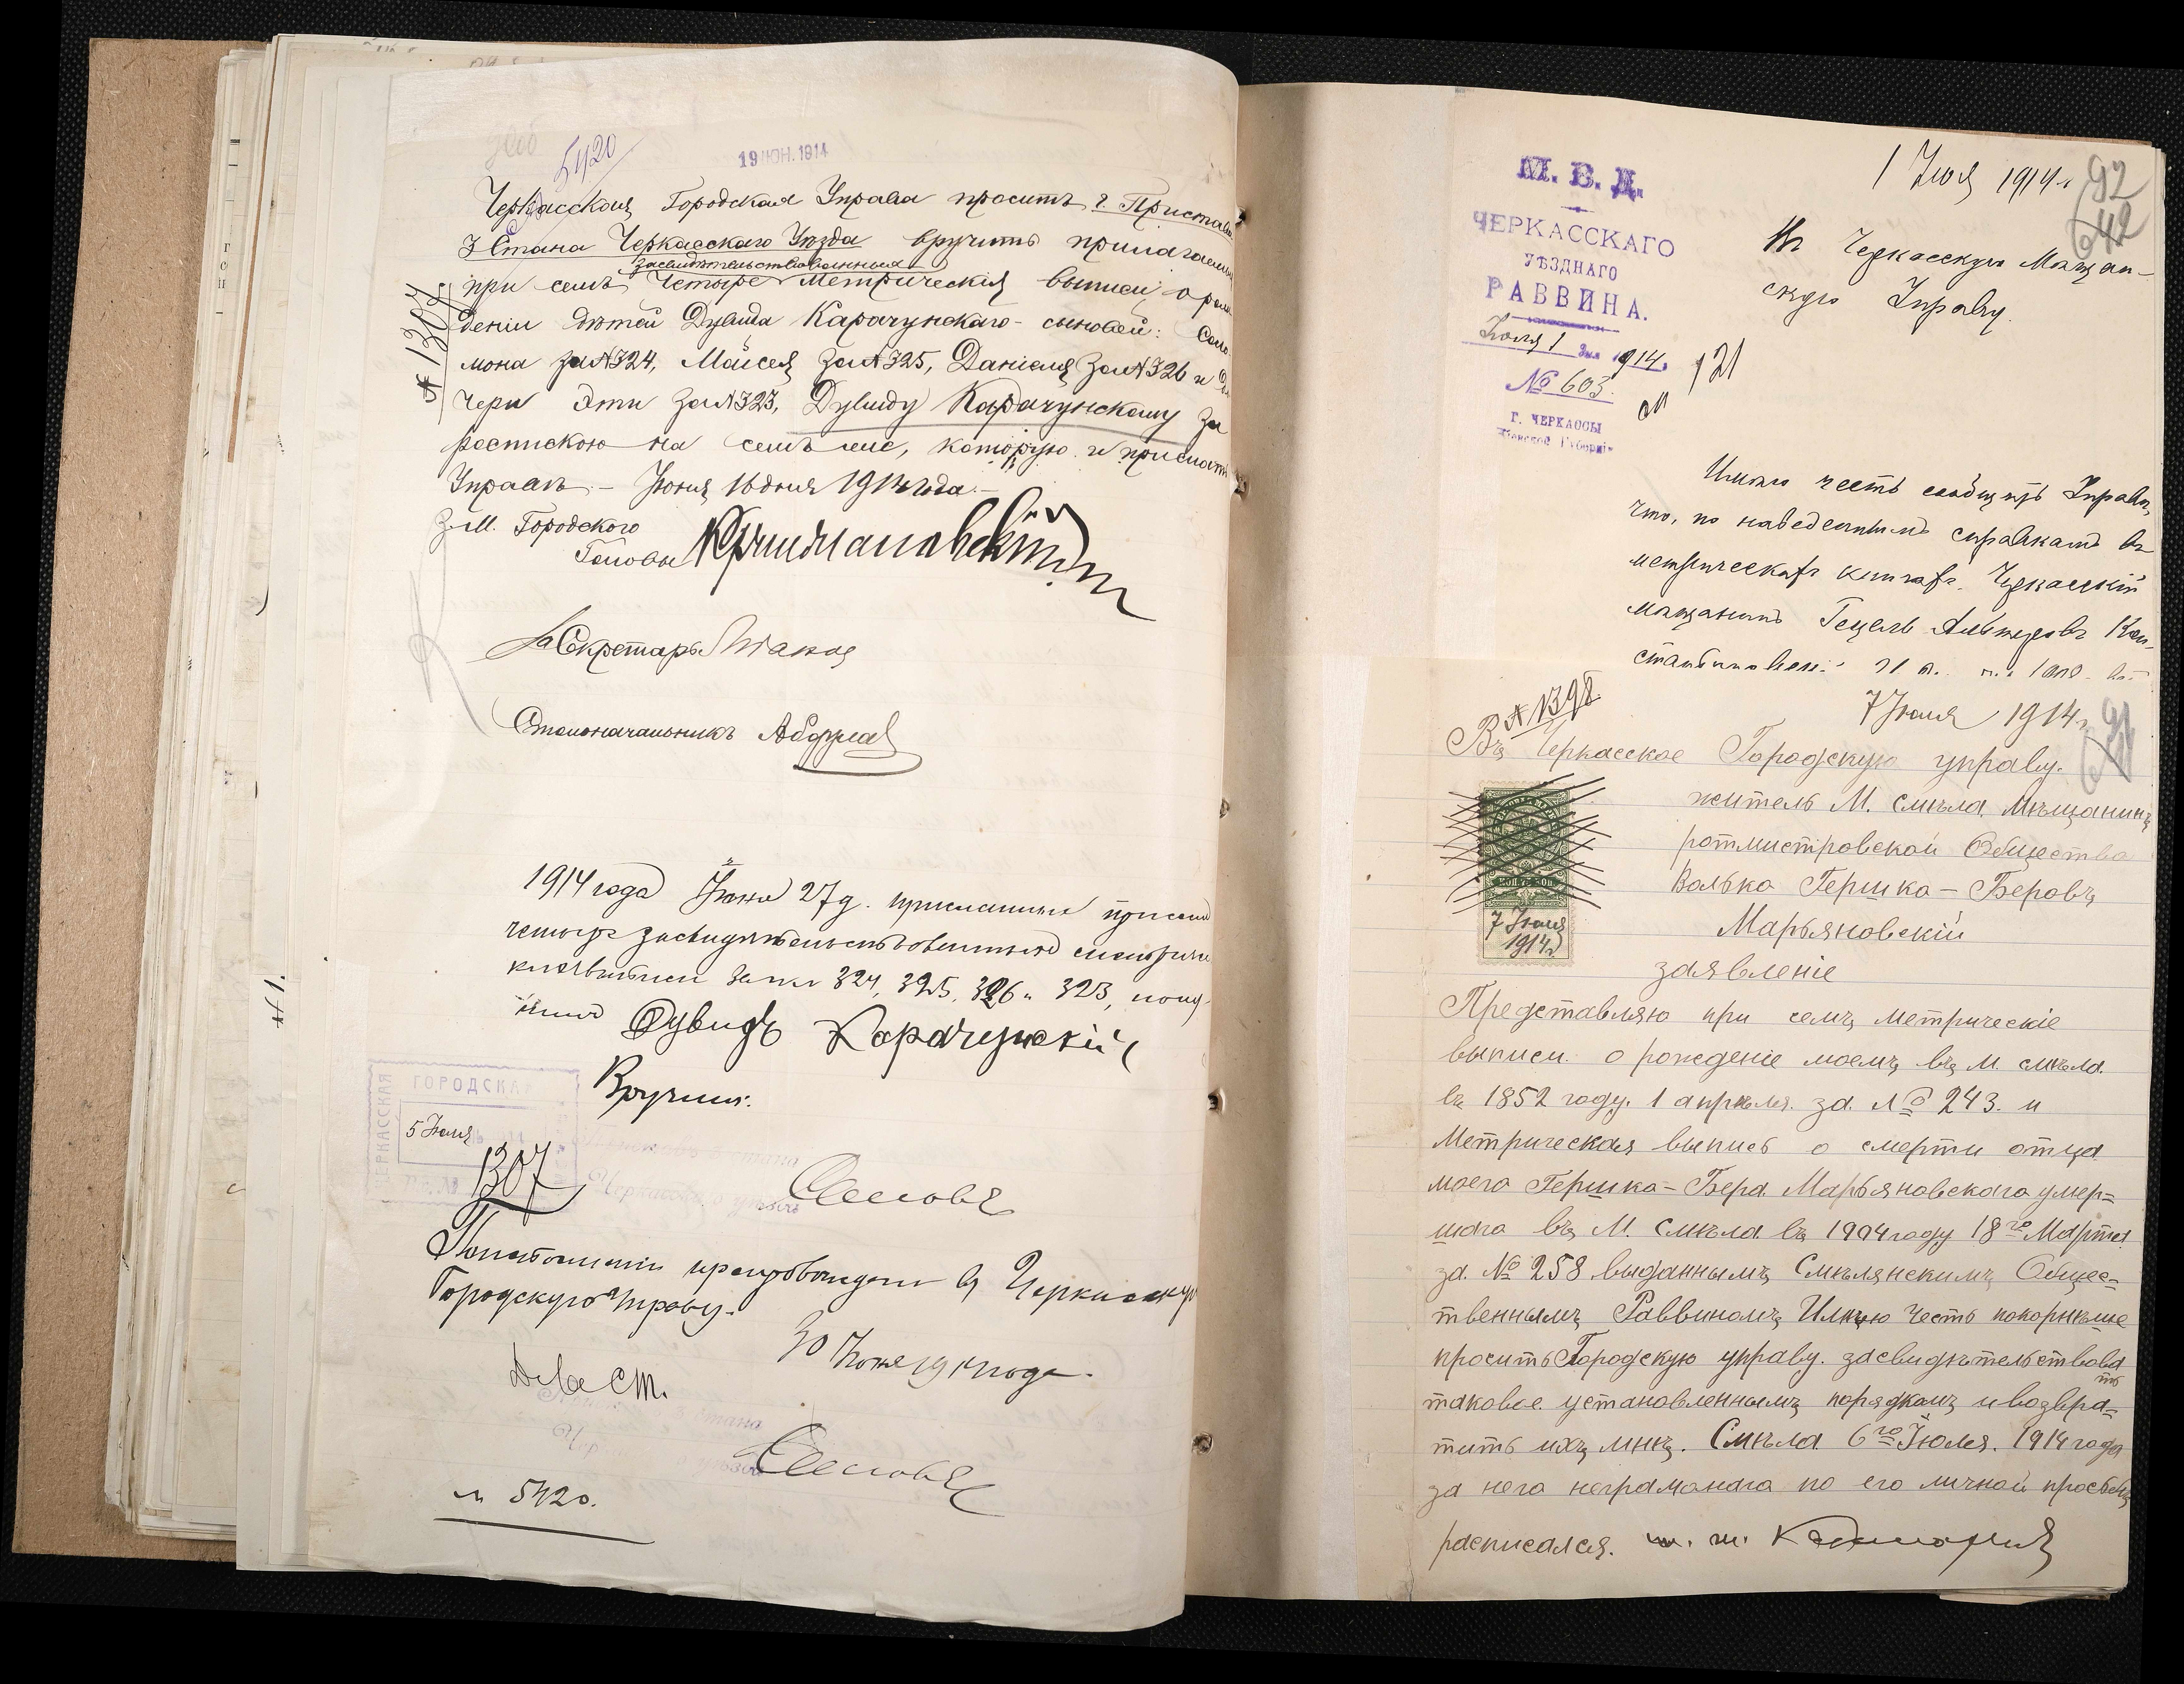 5420
19 ІЮН. 1914
Черкасская Городская Управа проситъ г. Пристава
3 Стана Черкасскаго Уѣзда вручить прилагаемыя
засвидѣтельствованныя
при семъ четыре метрическія выписи о рож-
деніи дѣтей Дувида Карачунскаго - сыновей: Соло-
мона за № 324, Мойсея за № 325, Даніеля за № 326 и до-
чери Эти за № 323, Дувиду Карачунскому за
роспискою на семъ же, которую и прислать
Управѣ. – Іюня 16 дня 1914 года. –
№ 1307
З. М. Городского
Головы
Секретарь
Столоначальникъ
1914 года Іюня 27 д. присланныя при семъ
четыре засвидѣтельствованныя метриче
кія выписи за №№ 324, 325, 326 и 323, полу-
чилъ Дувидъ Карачунскій
Вручилъ:
ЧЕРКАССКАЯ ГОРОДСКАЯ
5 Іюля
1307
По исполненіи препровождаю въ Черкасскую
Городскую Управу.
30 Іюня 1914 года.
№ 5420.
М. В. Д.
ЧЕРКАССКАГО
УѢЗДНАГО
РАВВИНА.
Іюля 1 дня 1914 г.
№ 603.
Г. ЧЕРКАССЫ
Кіевской Губерніи
1 Іюля 1914 г.
92
42
Въ Черкасскую Мѣщан-
скую Управу.
121
Имѣю честь сообщить Управѣ,
что, по наведеннымъ справкамъ въ
метрическихъ книгахъ, Черкасскій
мѣщанинъ Гецель Альтеровъ Кон-
стантиновскій
№ 1398
7 Іюля 1914 г.
91
Въ Черкасское Городскую управу.
житель М. смѣла мѣщанинъ
ротмистровской Общества
Волько Гершко-Беровъ
Марьяновскій
7 Іюля
1914 г.
заявленіе
Представляю при семъ метрическіе
выписи о рожденіе моемъ въ М. смѣла
въ 1852 году. 1 апрѣля за № 243. и
Метрическая выпись о смерти отца
моего Гершко-Бера Марьяновскаго умер=
шаго въ М. смѣла въ 1904 году 18го Марта
за № 258 выданнымъ Смѣлянскимъ Общес=
твеннымъ Раввиномъ Имѣю честь покорнѣше
просить Городскую управу засвидѣтельствова
ть
таковое установленнымъ порядкомъ и возвра=
тить ихъ мнѣ. Смѣла 6го Іюля 1914 года
за него неграмонаго по его личной просьбѣ
расписался.